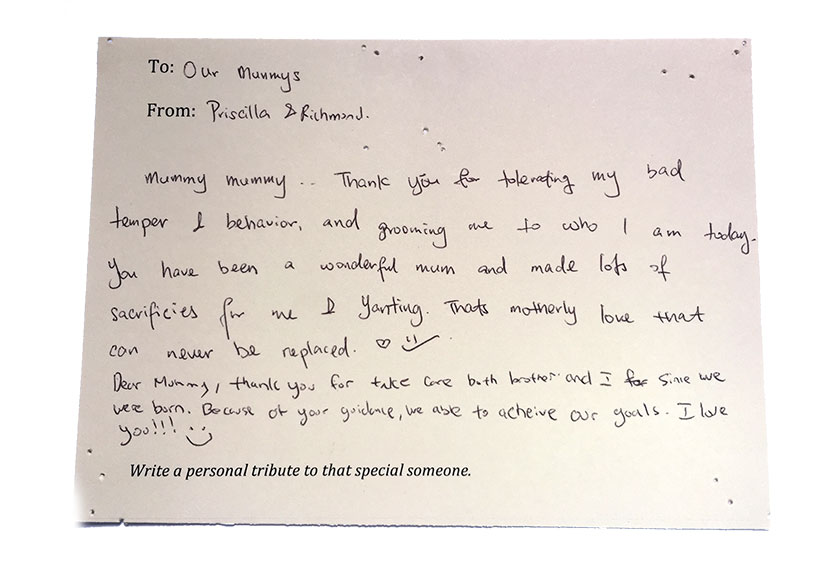 To: Our Mummys
From: Priscilla & Richmond.
Mummy mummy .. Thank you for tolerating my bad
temper & behavior, and grooming me to who I am today.
You have been a wonderful mum and made lots of
sacrificies for me & Yanting. Thats motherly love that
can never be replaced. ♡
Dear Mummy, thank you for take care both brother and I for since we
were born. Because of your guidance, we able to acheive our goals. I love
you!!!
Write a personal tribute to that special someone.